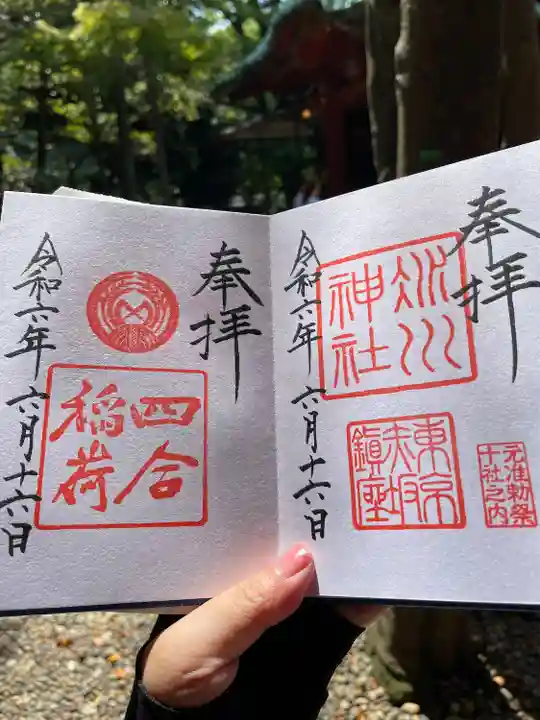 奉拝
氷川
神社
東京
赤坂
鎮座
元准勅祭
十社之内
令和六年 六月十六日
奉拝
四合
稲荷
令和六年 六月十六日